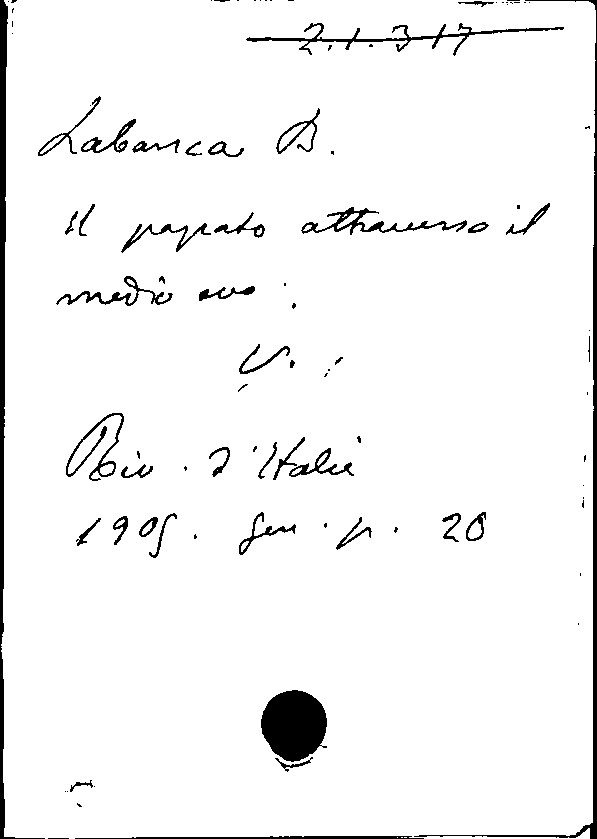 2.1.317
Labanca B.
Il papato attraverso il
medio evo.
V.
Riv. d'Italia
1905. Gen. p. 20